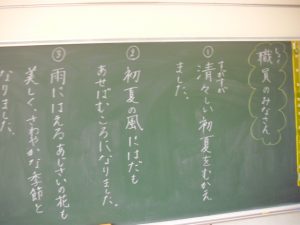 しょく
職員のみなさん
すがすが
①清々しい初夏をむかえ
ました。
②初夏の風にはだも
あせばむころになりました。
③雨にはえるあじさいの花も
美しく、さわやかな季節と
なりました。